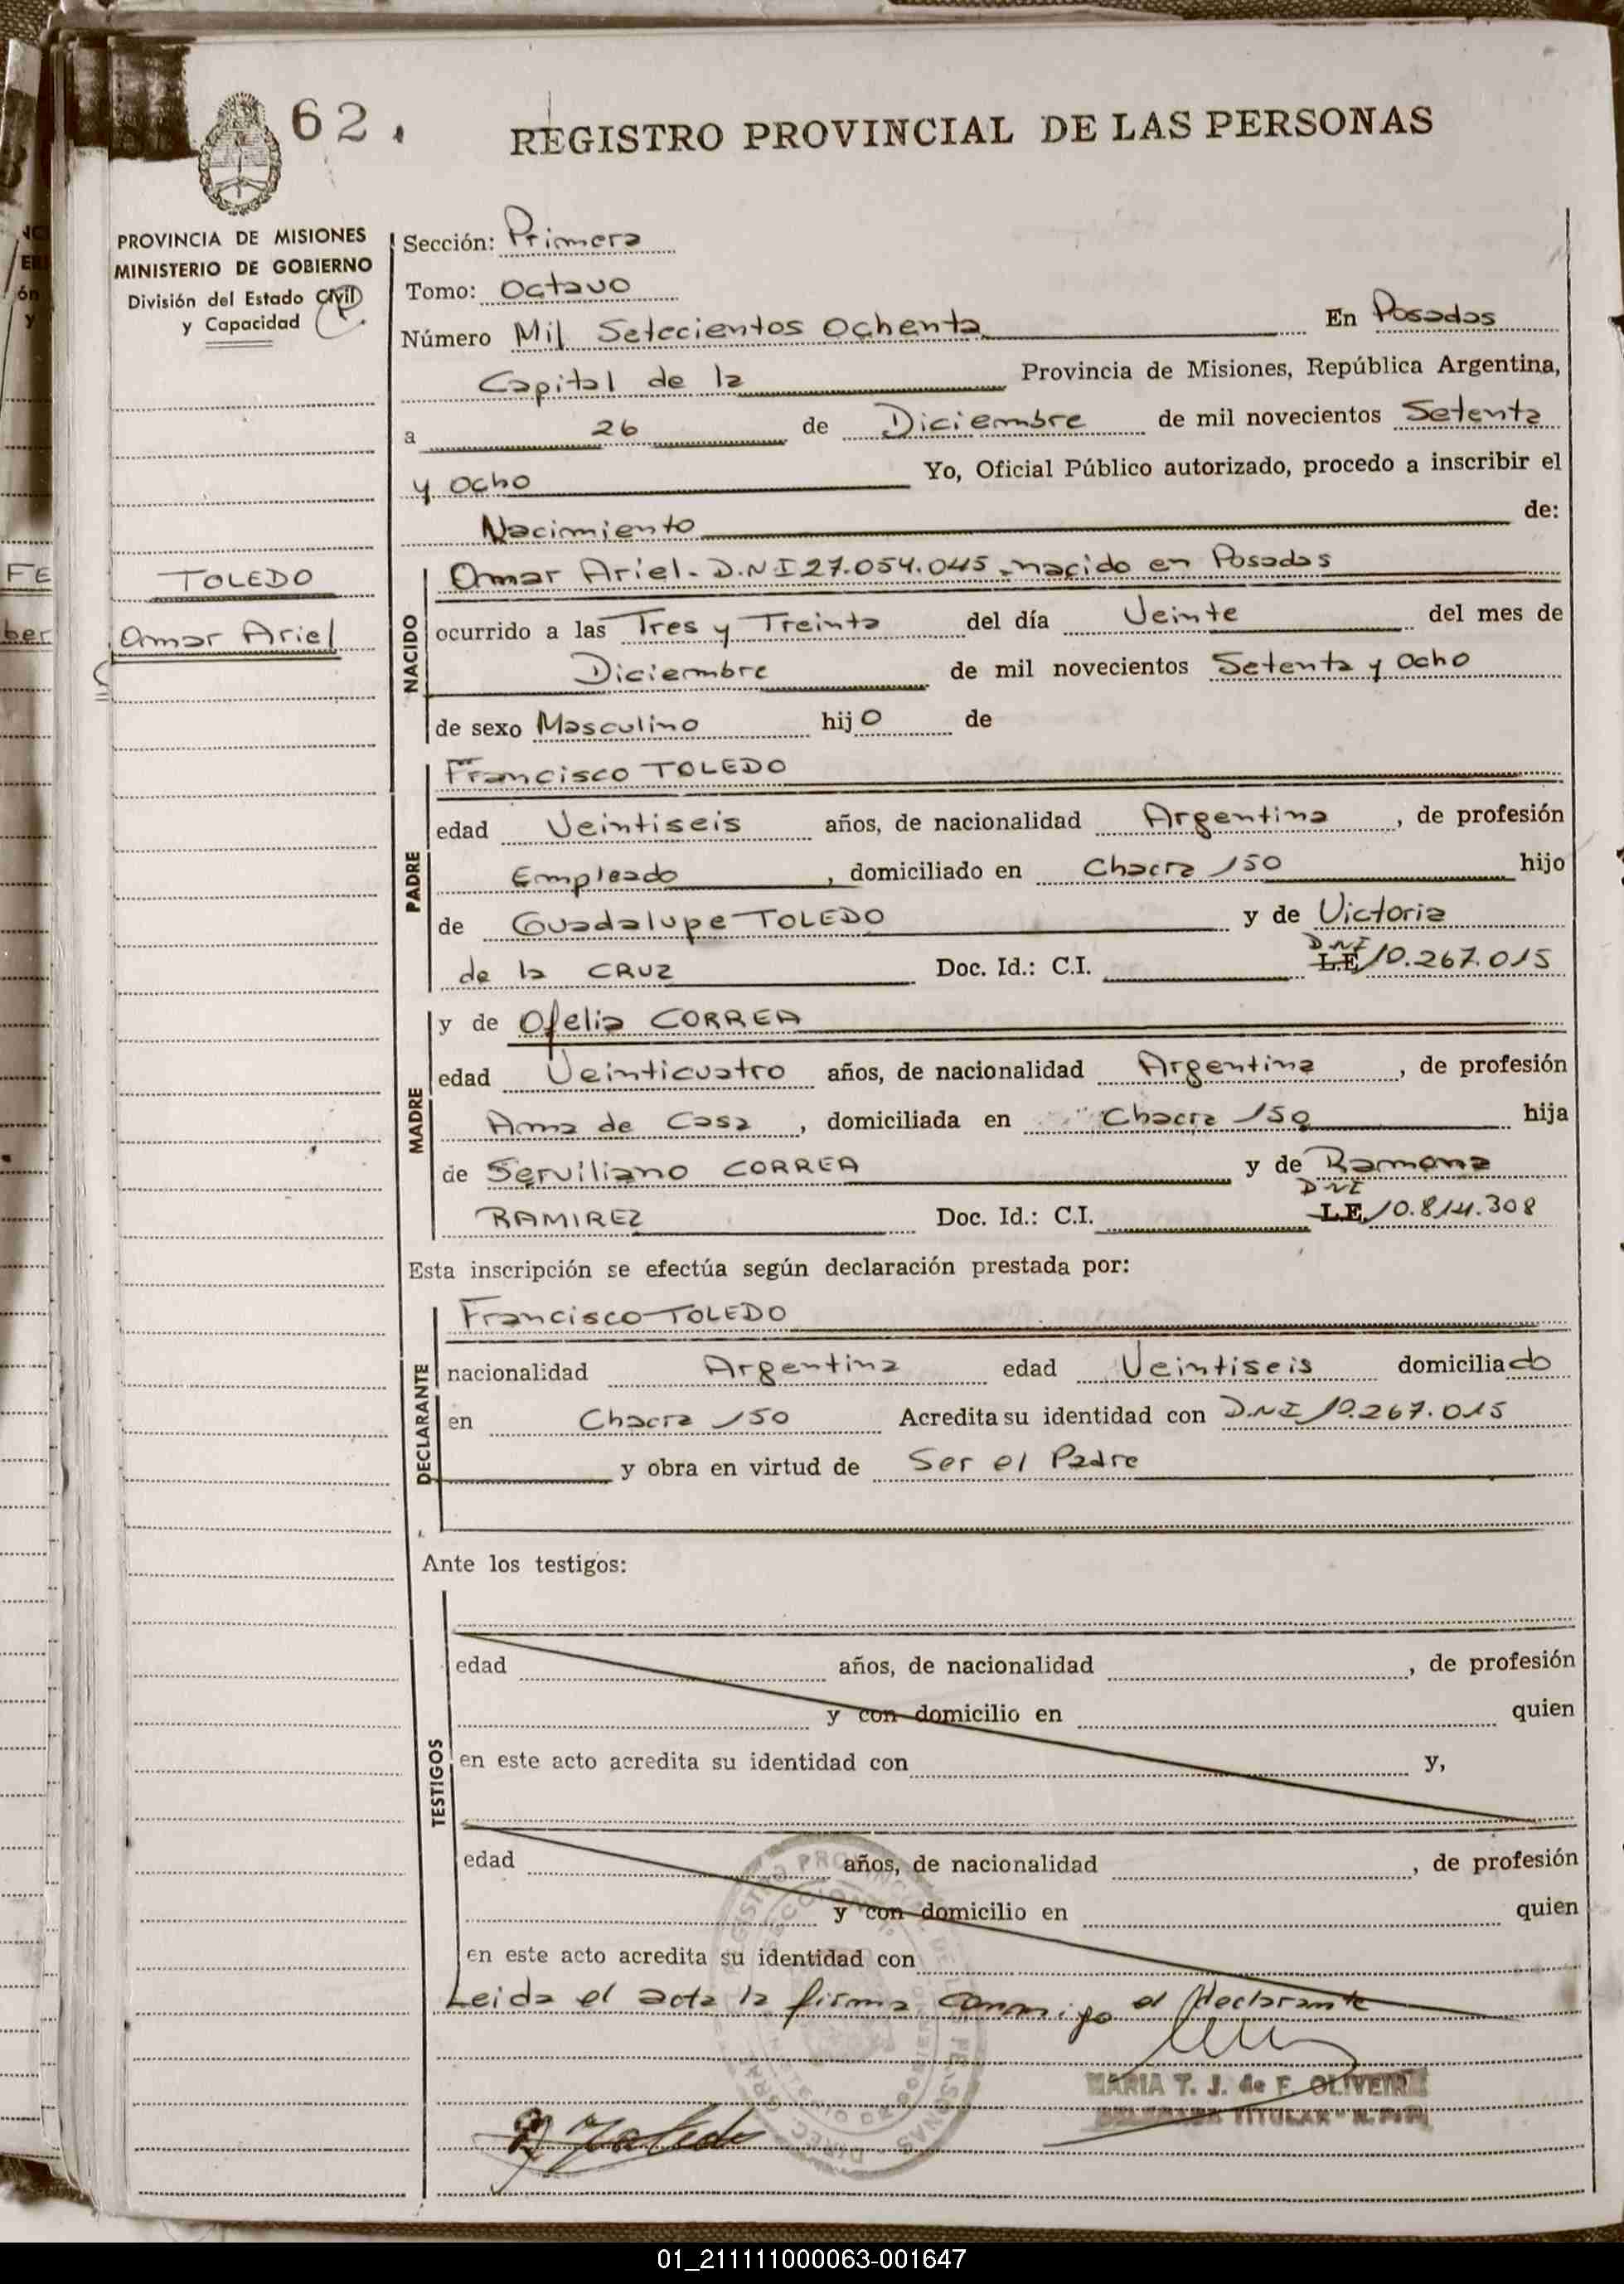 62.
REGISTRO PROVINCIAL DE LAS PERSONAS
PROVINCIA DE MISIONES
MINISTERIO DE GOBIERNO
División del Estado Civil
y Capacidad
TOLEDO
Omar Ariel
FE
ber
Sección: Primera
Tomo: Octavo
Número Mil Setecientos Ochenta En Posadas
Capital de la Provincia de Misiones, República Argentina,
a 26 de Diciembre de mil novecientos Setenta
y Ocho Yo, Oficial Público autorizado, procedo a inscribir el
Nacimiento de:
NACIDO
Omar Ariel. D.N.I 27.054.045 nacido en Posadas
ocurrido a las Tres y Treinta del día Veinte del mes de
Diciembre de mil novecientos Setenta y Ocho
de sexo Masculino hijo de
PADRE
Francisco TOLEDO
edad Veintiseis años, de nacionalidad Argentina, de profesión
Empleado, domiciliado en Chacra 150 hijo
de Guadalupe TOLEDO y de Victoria
de la CRUZ Doc. Id.: C.I. L.E. DNI 10.267.015
MADRE
y de Ofelia CORREA
edad Veinticuatro años, de nacionalidad Argentina, de profesión
Ama de Casa, domiciliada en Chacra 150 hija
de Serviliano CORREA y de Ramona
RAMIREZ Doc. Id.: C.I. L.E. DNI 10.814.308
Esta inscripción se efectúa según declaración prestada por:
DECLARANTE
Francisco TOLEDO
nacionalidad Argentina edad Veintiseis domiciliado
en Chacra 150 Acredita su identidad con D.N.I 10.267.015
y obra en virtud de Ser el Padre
Ante los testigos:
TESTIGOS
edad años, de nacionalidad , de profesión
y con domicilio en quien
en este acto acredita su identidad con y,
edad años, de nacionalidad , de profesión
y con domicilio en quien
en este acto acredita su identidad con
Leida el acta la firma conmigo el declarante
MARIA T. J. de F. OLIVEIRA
TITULAR
Toledo
01_211111000063-001647